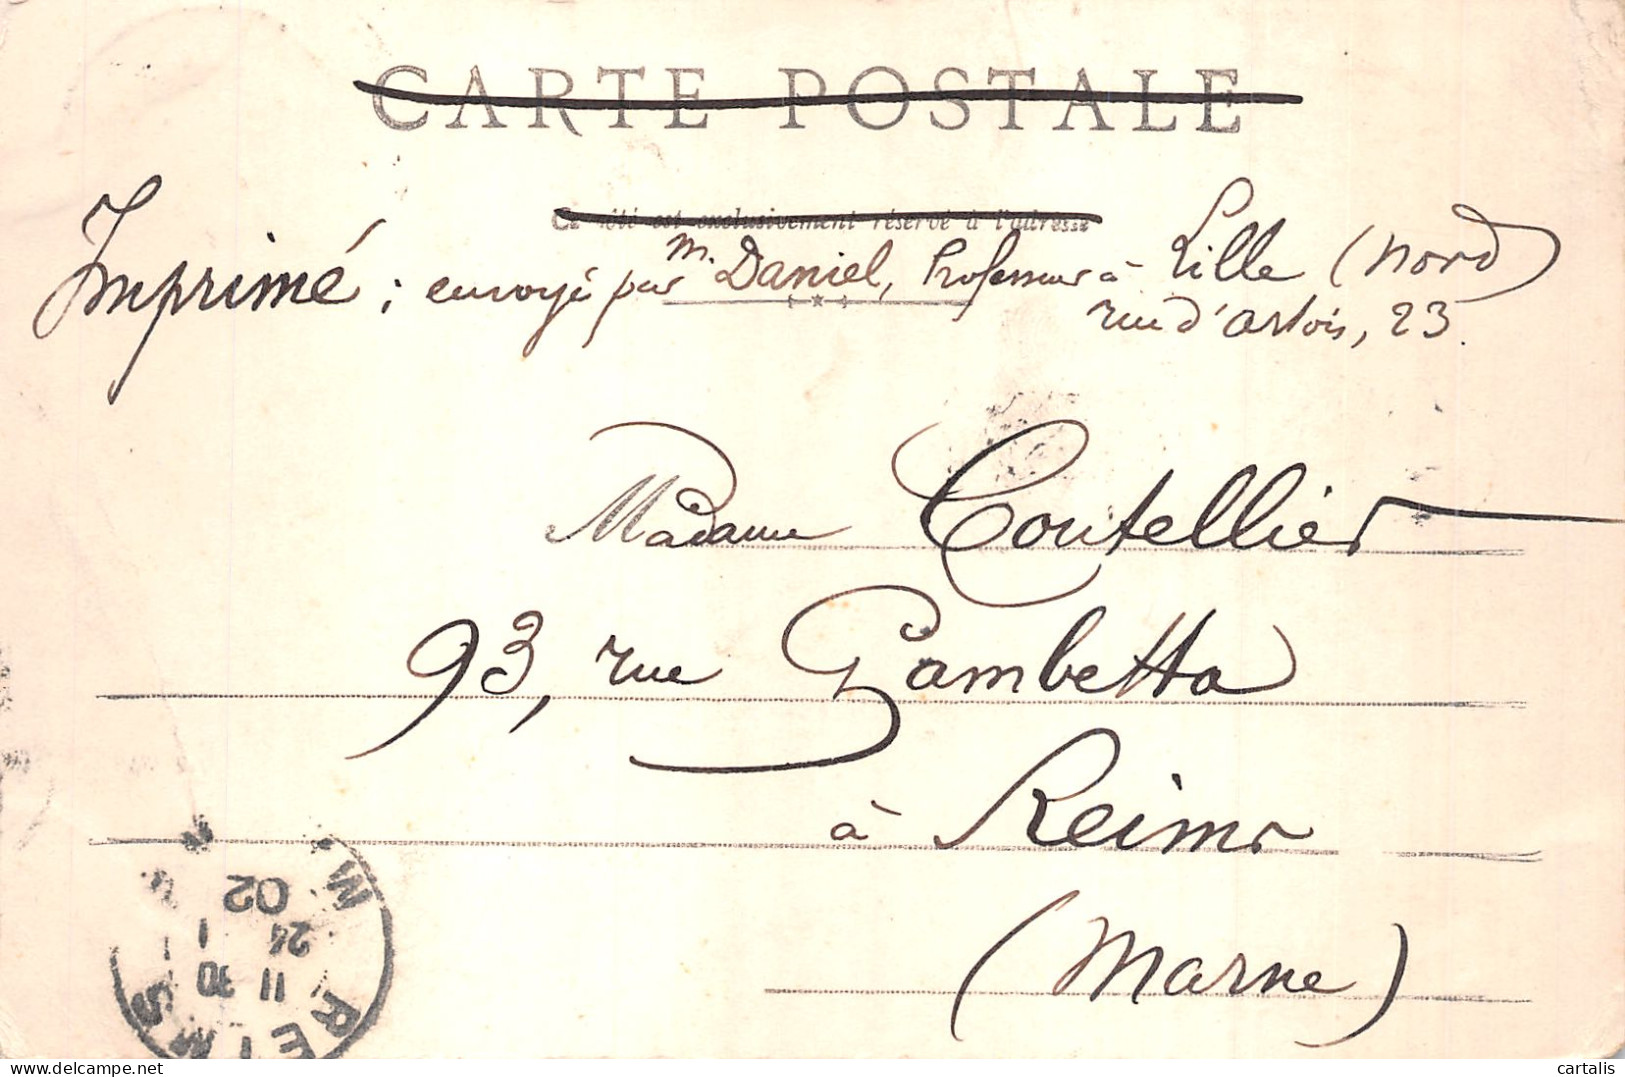 CARTE POSTALE
Ce côté est exclusivement réservé à l'adresse
Imprimé ; envoyé par M. Daniel, Professeur à Lille (Nord)
rue d'Artois, 23.
Madame Coutellier
93, rue Gambetta
à Reims
(Marne)
REIMS
11 30
24 1
02
M
cartalis